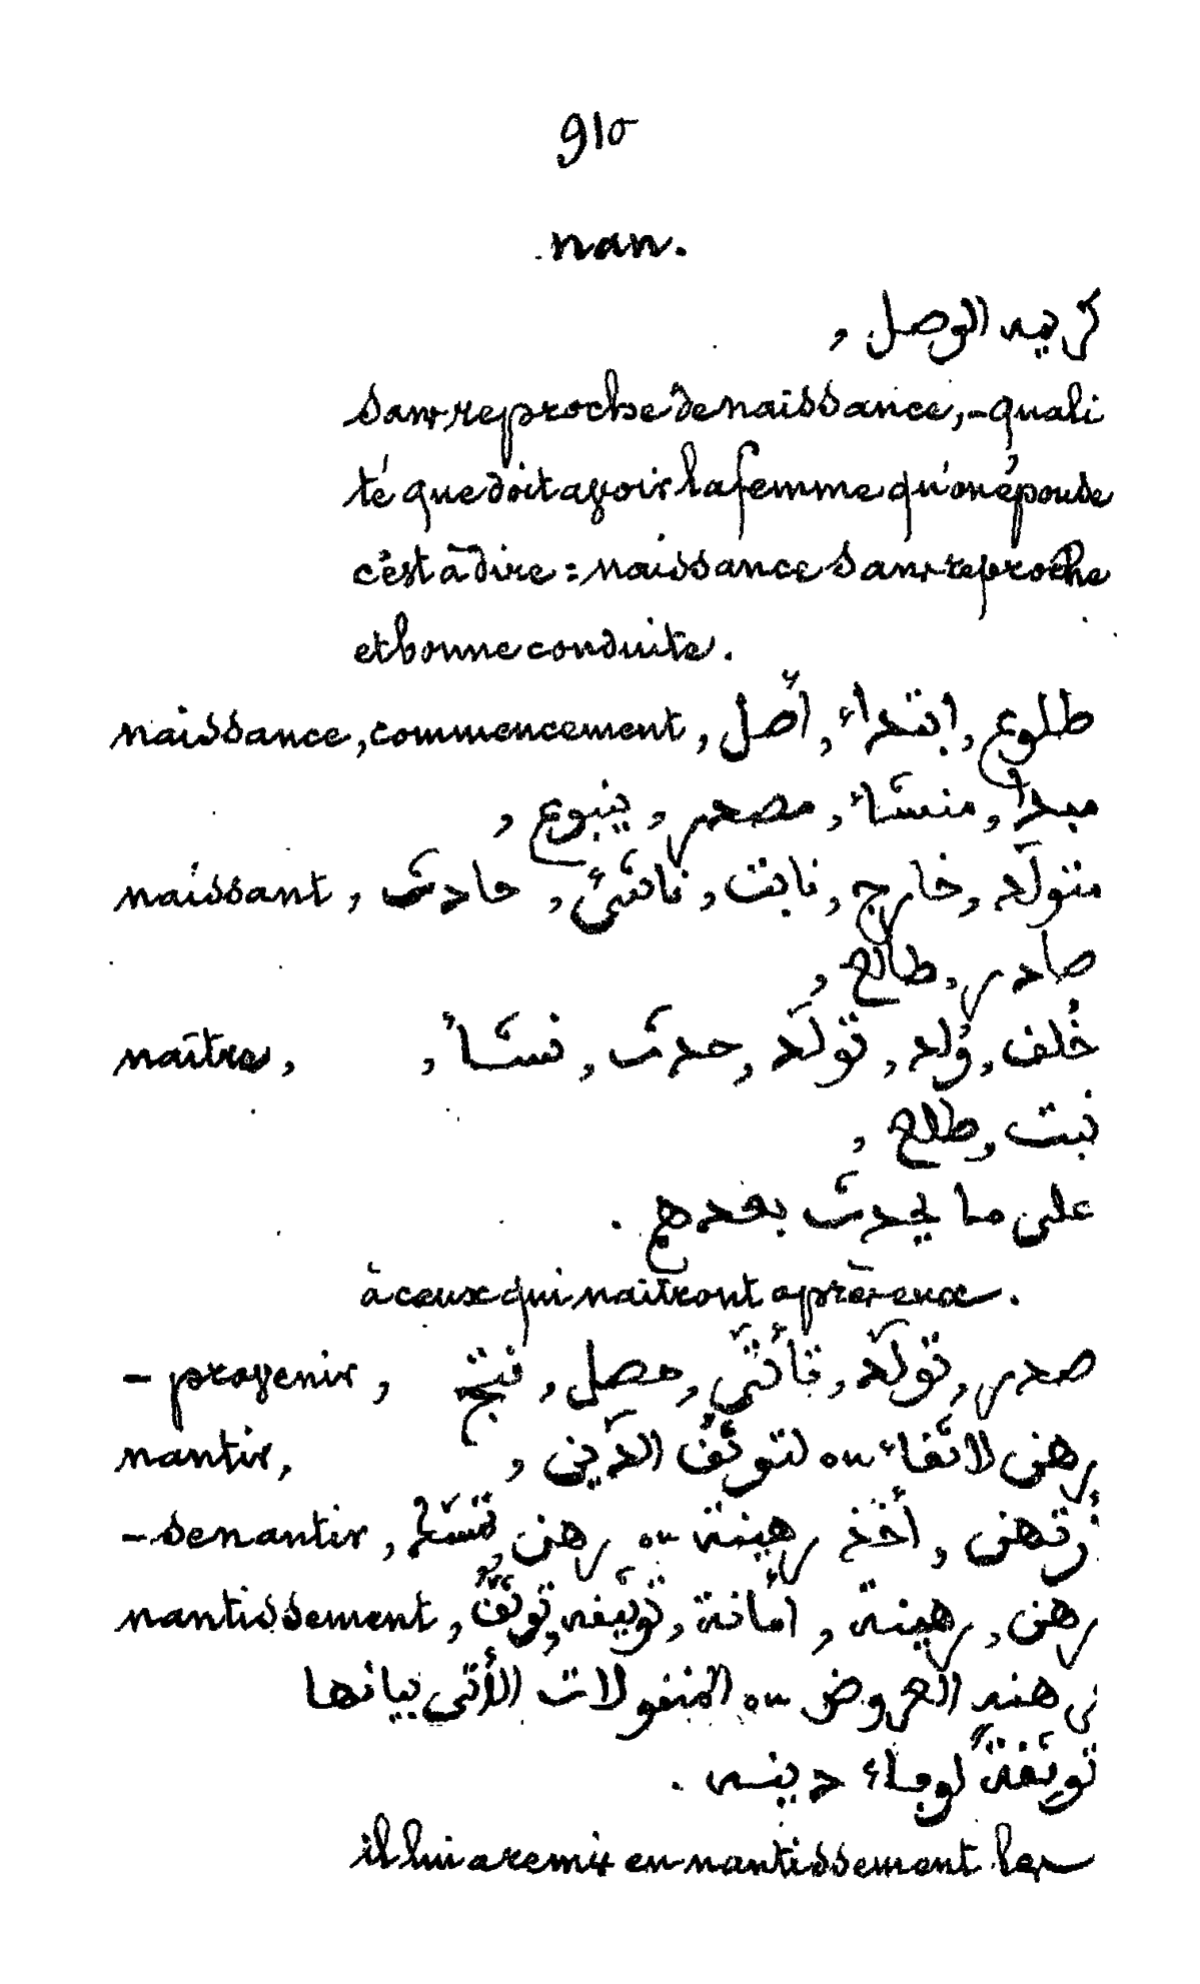 910
nan.
كريم الوصل ,
sans reproche de naissance, - quali
té que doit avoir la femme qu'on épouse
c'est à dire : naissance sans reproche
et bonne conduite.
naissance, commencement, طلوع , ابتداء , أصل
مبدأ , منشاء , مصدر , ينبوع ,
naissant, متولّد , خارج , نابت , ناشئ , حادث
صادر , طالع ,
naître, خُلف , وُلد , تولّد , حدث , نشأ ,
نبت , طلع ,
على ما يحدث بعدهم .
à ceux qui naîtront après eux.
- provenir, صدر , تولّد , تأتّى , حصل , نتج
nantir, رهن لاتقاء ou لتوثّق الدَّين ,
- se nantir, أرتهن , أخذ رهينة ou رهن
nantissement, رهن , رهينة , أمانة , توثيقه , توثّق
في هذه العروض ou المنقولات الأتى بيانها
توثقةً لوفاء دينه .
il lui a remis en nantissement les